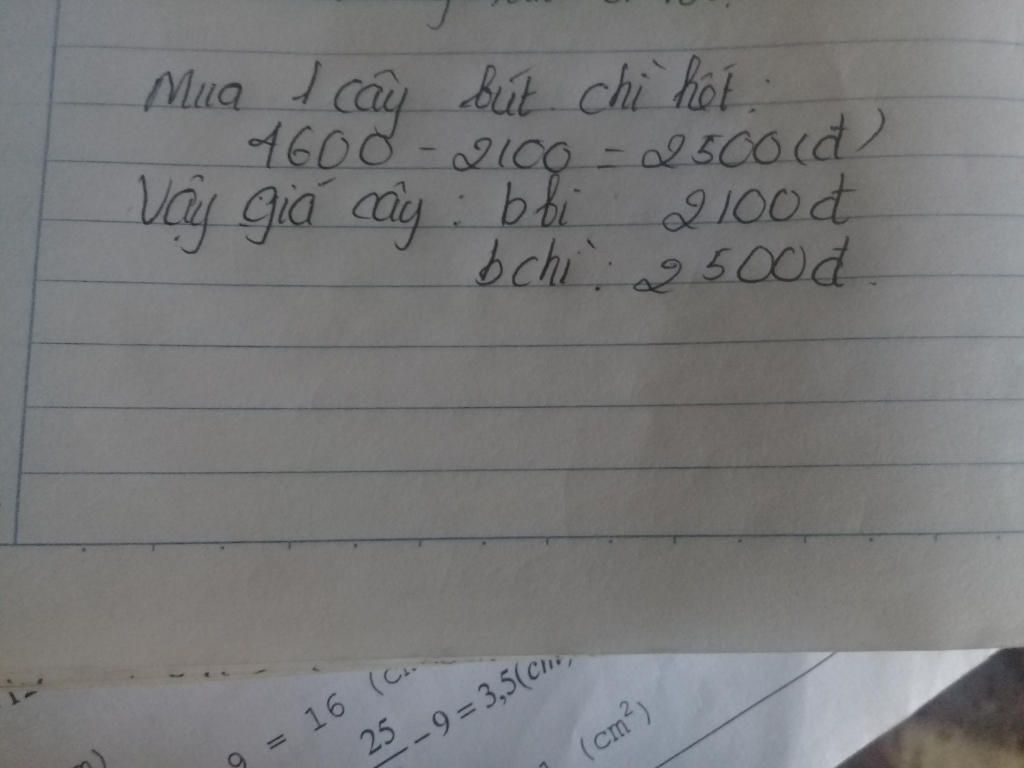 Mua 1 cây bút chì hết:
4600 - 2100 = 2500(đ)
Vậy giá cây : b bi 2100đ
b chì : 2500đ.
9 = 16
25
- 9 = 3,5(cm)
(cm²)